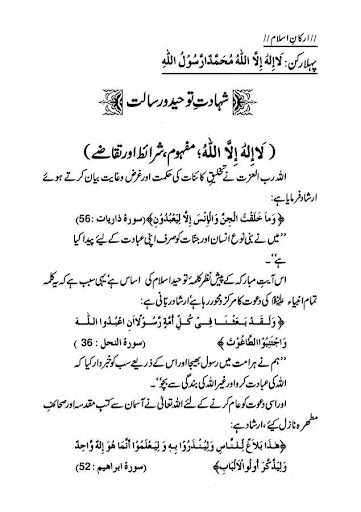 // ارکانِ اسلام //
پہلا رکن: لَا اِلٰهَ اِلَّا اللّٰهُ مُحَمَّدٌ رَّسُوْلُ اللّٰهِ
شہادتِ توحید ورسالت
( لَا اِلٰهَ اِلَّا اللّٰهُ؛ مفہوم، شرائط اور تقاضے )
اللہ رب العزت نے تخلیقِ کائنات کی حکمت اور غرض وغایت بیان کرتے ہوئے
ارشاد فرمایا ہے:
﴿ وَمَا خَلَقْتُ الْجِنَّ وَالْاِنْسَ اِلَّا لِيَعْبُدُوْنِ﴾ (سورۃ ذاریات :56)
”میں نے بنی نوع انسان اور جنّات کو صرف اپنی عبادت کے لیے پیدا کیا
ہے“۔
اس آیتِ مبارکہ کے پیشِ نظر کلمۂ توحید اسلام کی اساس ہے، یہی سبب ہے کہ یہ کلمہ
تمام انبیاء ﷩ کی دعوت کا مرکز ومحور رہا ہے، ارشادِ ربّانی ہے:
﴿ وَلَقَدْ بَعَثْنَا فِىْ كُلِّ اُمَّةٍ رَّسُوْلًا اَنِ اعْبُدُوا اللّٰهَ
وَاجْتَنِبُوا الطَّاغُوْتَ ﴾ (سورۃ النحل : 36 )
”ہم نے ہر امت میں رسول بھیجا اور اس کے ذریعے سب کو خبردار کیا کہ
اللہ کی عبادت کرو اور غیر اللہ کی بندگی سے بچو“۔
اور اسی دعوت کو عام کرنے کے لئے اللہ تعالیٰ نے آسمان سے کتبِ مقدسہ اور صحائفِ
مطہرہ نازل کیئے، ارشاد ہے:
﴿هٰذَا بَلَاغٌ لِّلنَّاسِ وَلِيُنْذَرُوْا بِهٖ وَلِيَعْلَمُوْا اَنَّمَا هُوَ اِلٰهٌ وَّاحِدٌ
وَلِيَذَّكَّرَ اُولُو الْاَلْبَابِ﴾ (سورۃ ابراھیم : 52)